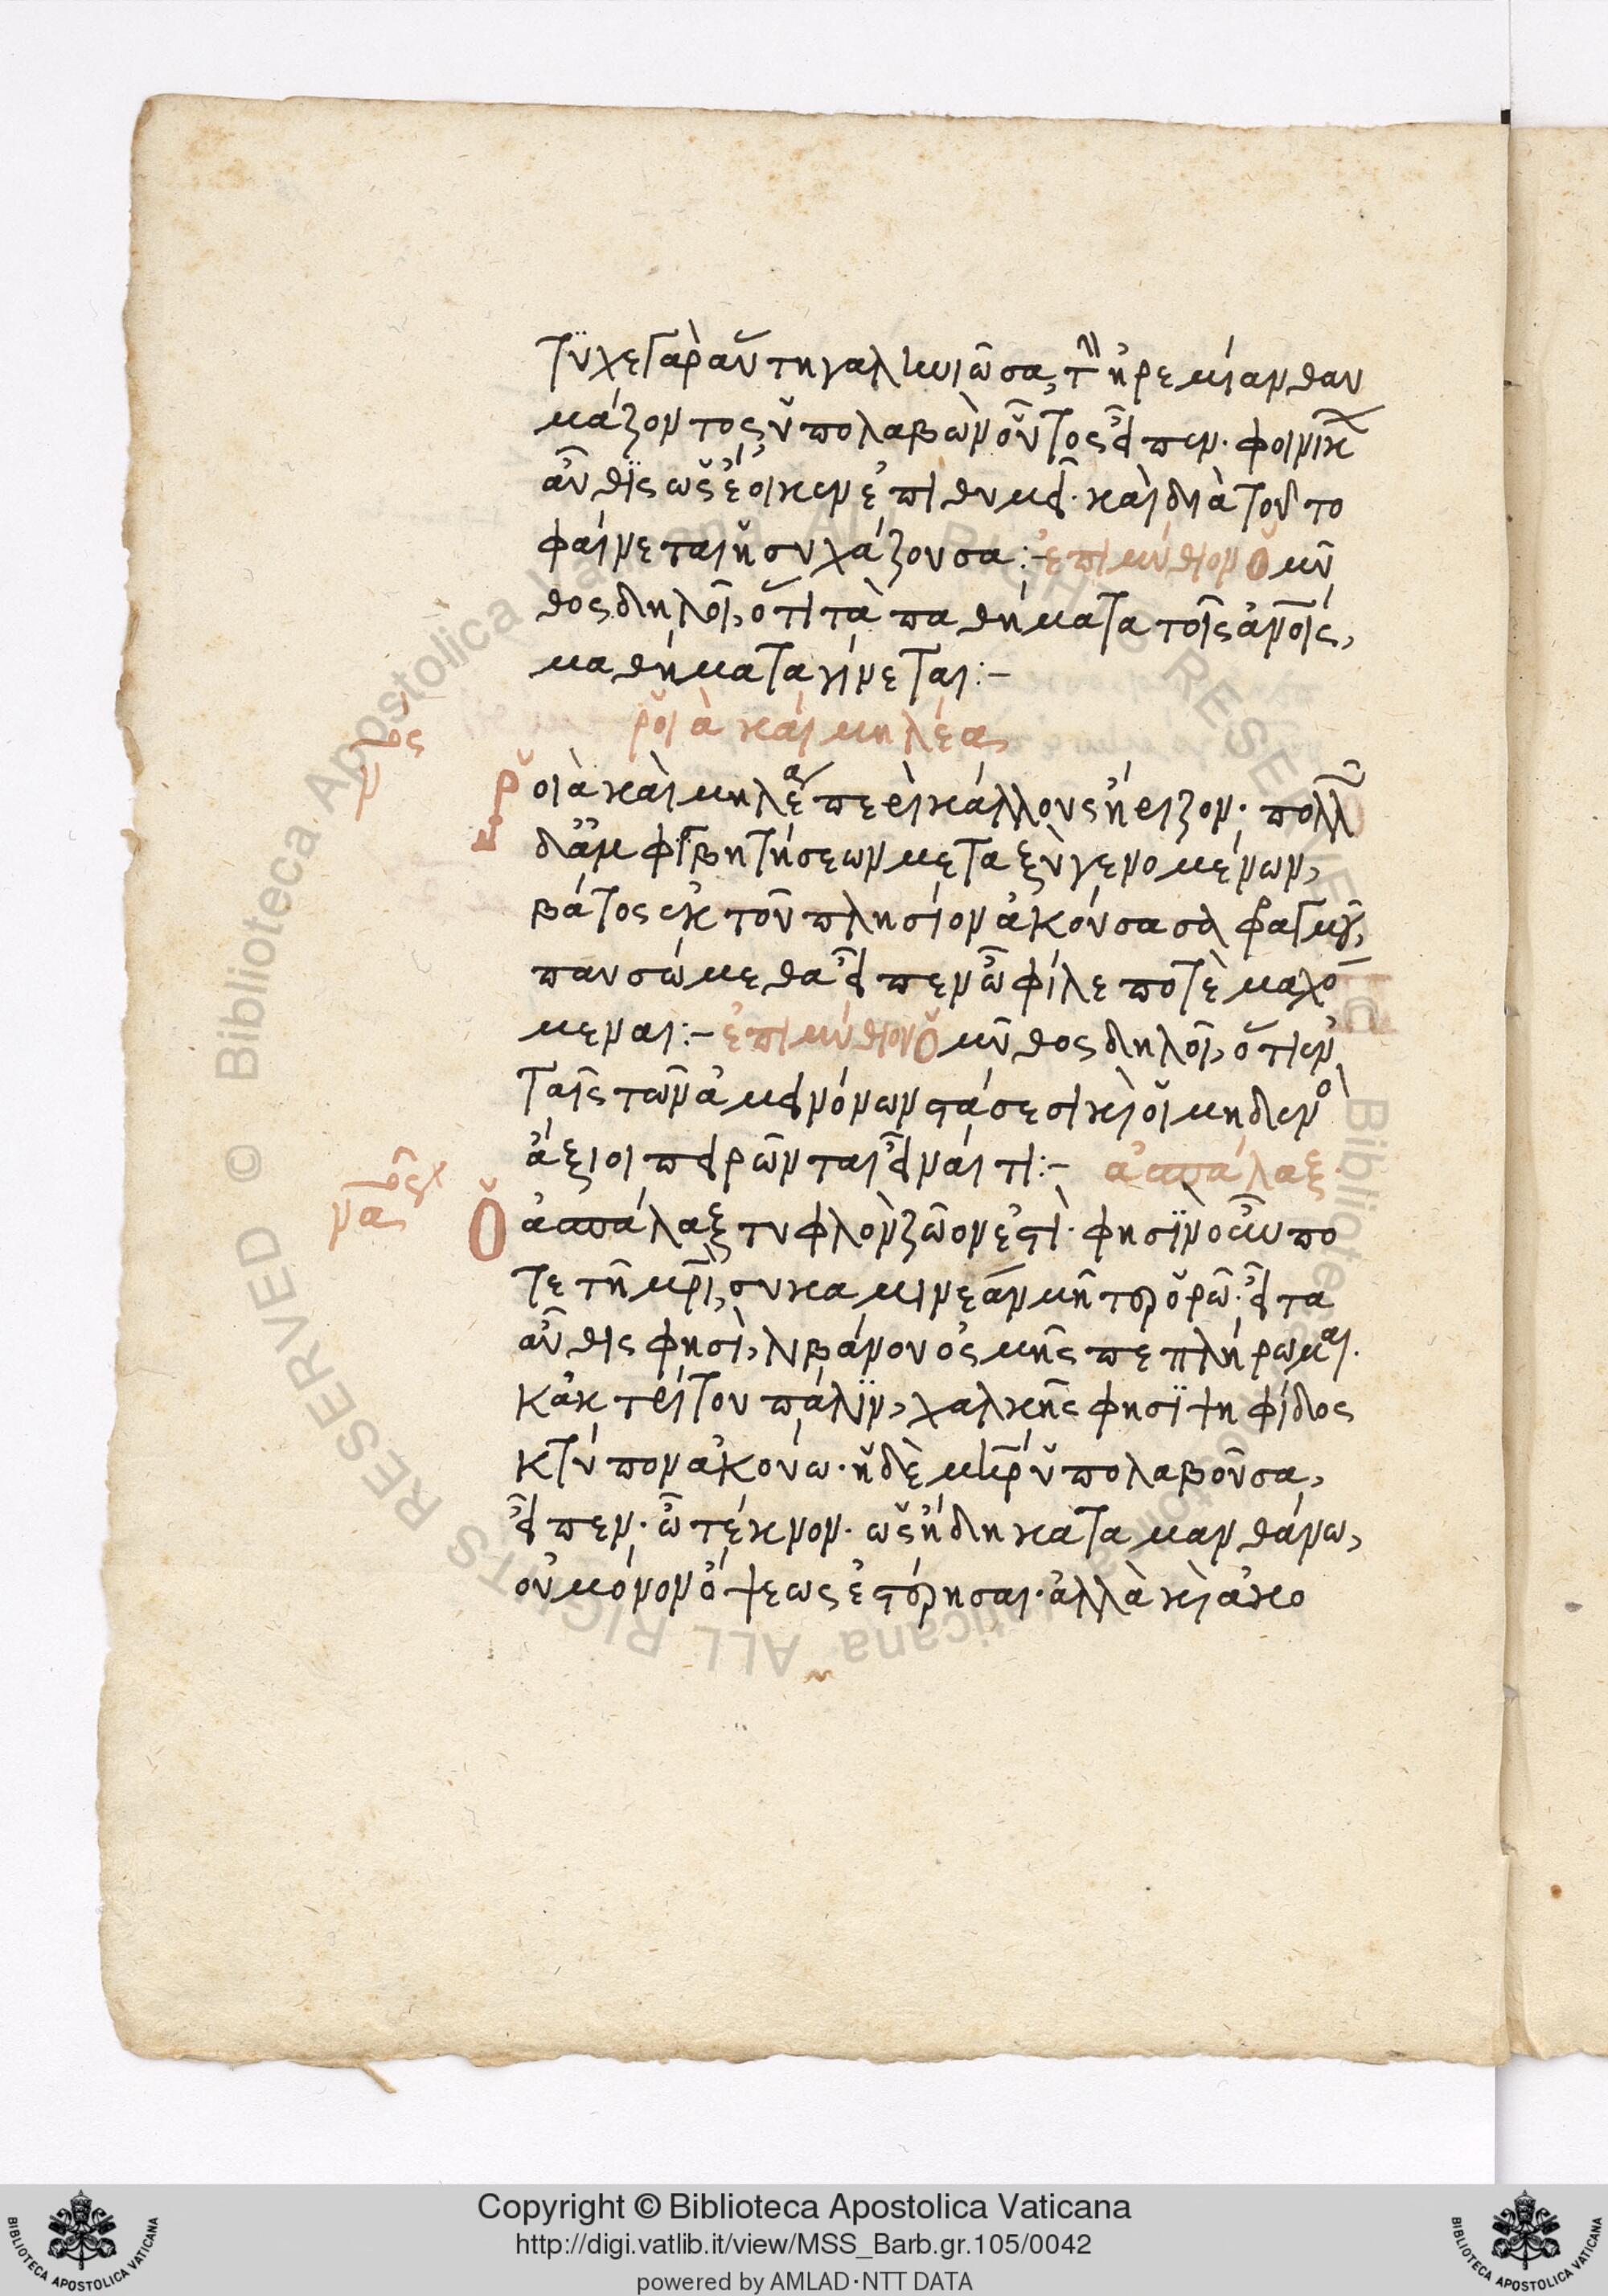 τϋχε γὰρ αὕτη γαληνιῶσα, τὴν ἠρεμίαν θαυ
μάζοντος, ὑπολαβὼν οὗτος εἶπεν· φοινίκων
αὖθϊς ὡς ἔοικεν ἐπιθυμεῖ· καὶ διὰ τοῦτο
φαίνεται ἡσυχάζουσα:- ἐπιμύθιον Ὁ μῦ
θος δηλοῖ, ὅτι τὰ παθήματα τοῖς ἀνοις,
μαθήματα γίνεται:-
ῥοιὰ καὶ μηλέα,
Ῥοιὰ καὶ μηλέα περὶ κάλλους ἤριζον· πολλῶν
δ' ἀμφισβητήσεων μεταξὺ γενομένων,
βάτος ἐκ τοῦ πλησίον ἀκούσασα φραγμοῦ,
παυσώμεθα εἶπεν ὦ φίλε ποτὲ μαχό
μεναι:- ἐπιμύθιον Ὁ μῦθος δηλοῖ, ὅτι ἐν
ταῖς τῶν ἀμεινόνων στάσεσι καὶ οἱ μηδενὸς
ἄξιοι πειρῶνται εἶναί τι:- ἀσπάλαξ·
Ὁ ἀσπάλαξ τυφλὸν ζῶον ἐστὶ· φησὶν οὖν πο
τε τῆ μρι, συκαμινέαν μῆτερ ὁρῶ· εἶτα
αὖθις φησὶ, λιβάνου ὀσμῆς πεπλήρωμαι·
κἀκ τρίτου πάλϊν, χαλκῆς φησϊ ψηφίδος
κτύπον ἀκούω· ἡ δὲ μηρ ὑπολαβοῦσα,
εἶπεν· ὦ τέκνον· ὡς ἤδη καταμανθάνω,
οὐ μόνον ὄψεως ἐστέρησαι· ἀλλὰ καὶ ἀκο
Copyright © Biblioteca Apostolica Vaticana
http://digi.vatlib.it/view/MSS_Barb.gr.105/0042
powered by AMLAD·NTT DATA